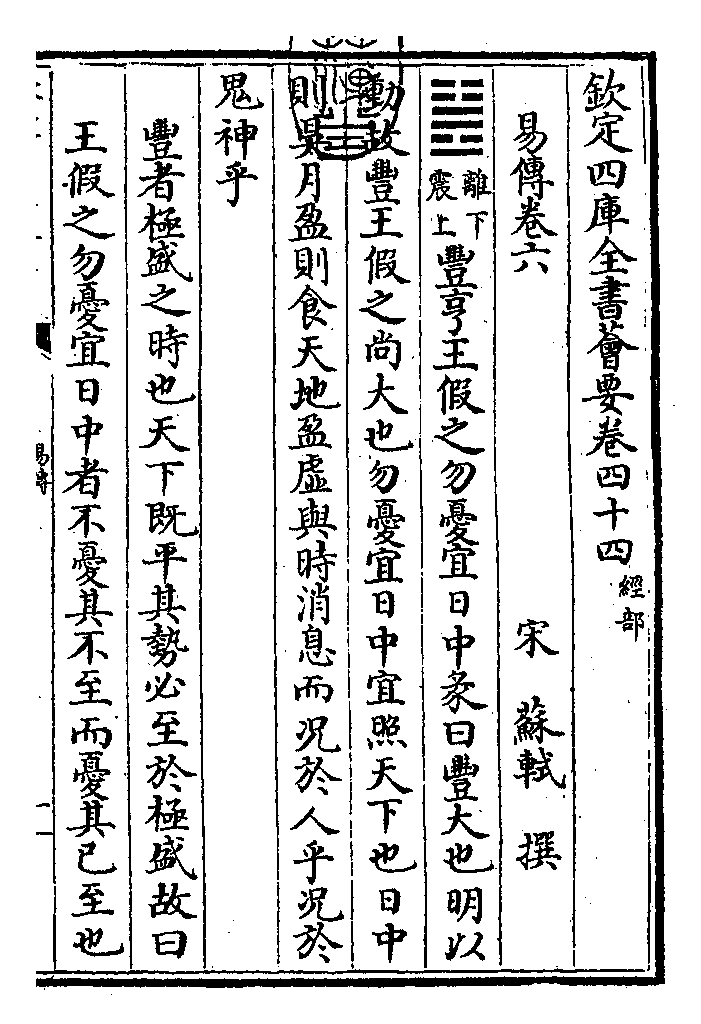 欽定四庫全書薈要卷四十四經部
易傳卷六 宋 蘇軾 撰
離下震上豐亨王假之勿憂宜日中彖曰豐大也明以
動故豐王假之尚大也勿憂宜日中宜照天下也日中
則昃月盈則食天地盈虛與時消息而况於人乎况於
鬼神乎
豐者極盛之時也天下既平其勢必至於極盛故曰
王假之勿憂宜日中者不憂其不至而憂其已至也
易傳
一